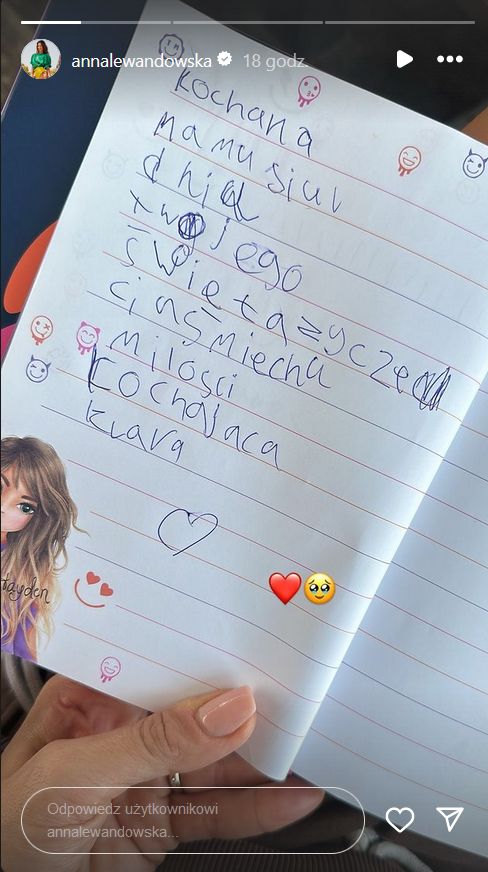 annalewandowska 18 godz.
kochana
mamusiu
dnia
twojego
święta życzę
ci uśmiecha
miłości
kochająca
klara
Hayden
Odpowiedz użytkownikowi
annalewandowska...